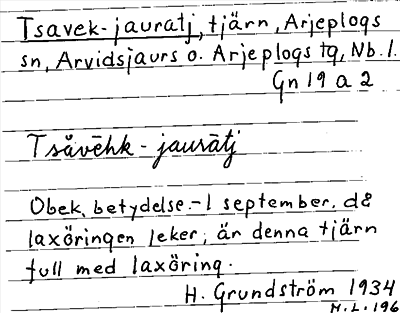 Tsavek-jauratj, tjärn, Arjeplogs
sn, Arvidsjaurs o. Arjeplogs tg, Nb. l.
Gn 19 a 2
Tsåvēhk-jaurātj
Obek. betydelse.-I september, då
laxöringen leker, är denna tjärn
full med laxöring.
H. Grundström 1934
H.L. 196